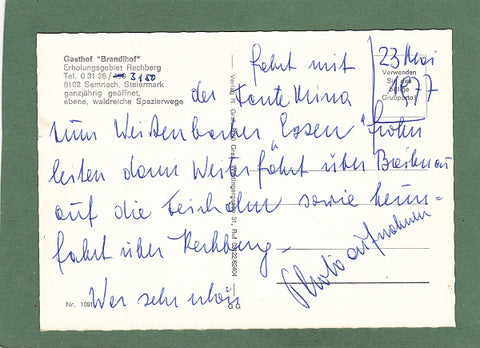 Gasthof "Brandlhof"
Erholungsgebiet Rechberg
Tel. 0 31 26 / 3150
8102 Semriach, Steiermark
ganzjährig geöffnet,
ebene, waldreiche Spazierwege
23 Mai
1977
Verwenden
Sie
Grußporto!
Fahrt mit
der Tante Mina
zum Essen Frohn
leiten dann Weiterfahrt über Breitenau
auf die Teichalm sowie heim-
fahrt über Rechberg –
War sehr schön
Photo aufnahmen
Verlag H.
Ruf
Nr. 1091